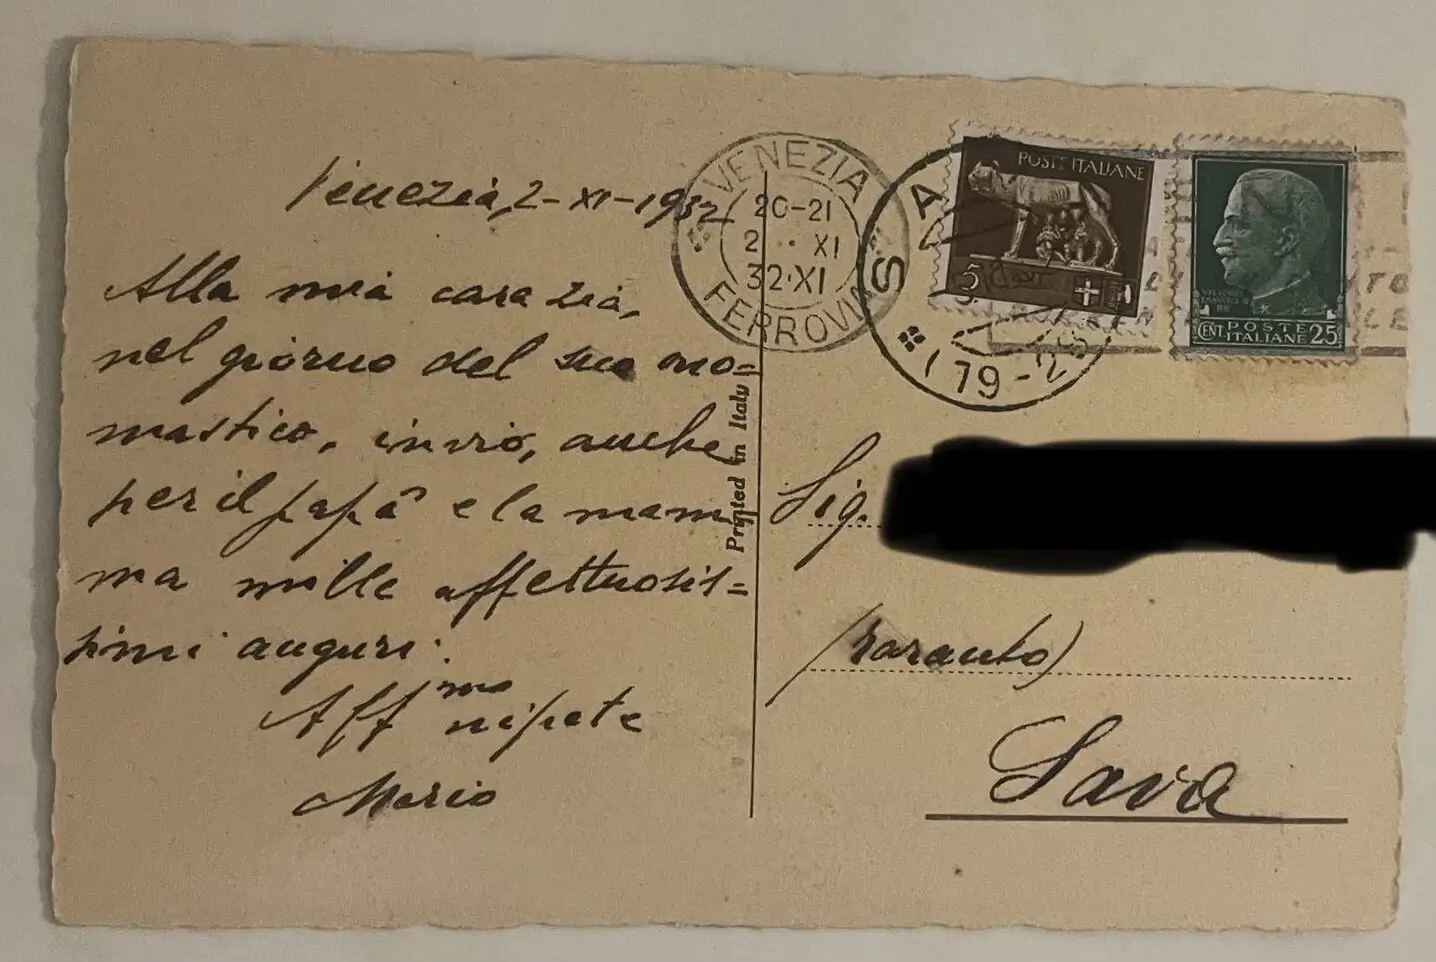 Venezia, 2-XI-1932
Alla mia cara zia,
nel giorno del suo ono=
mastico, invio, anche
per il papà e la mam
ma mille affettuosis=
simi auguri.
Aff mo nipote
Mario
Printed in Italy
VENEZIA
20-21
2 XI
32·XI
FERROVIA
SAVA
(79-25
POSTE ITALIANE
5 CENT
CENT POSTE 25
ITALIANE
Sig.
(Taranto)
Sava